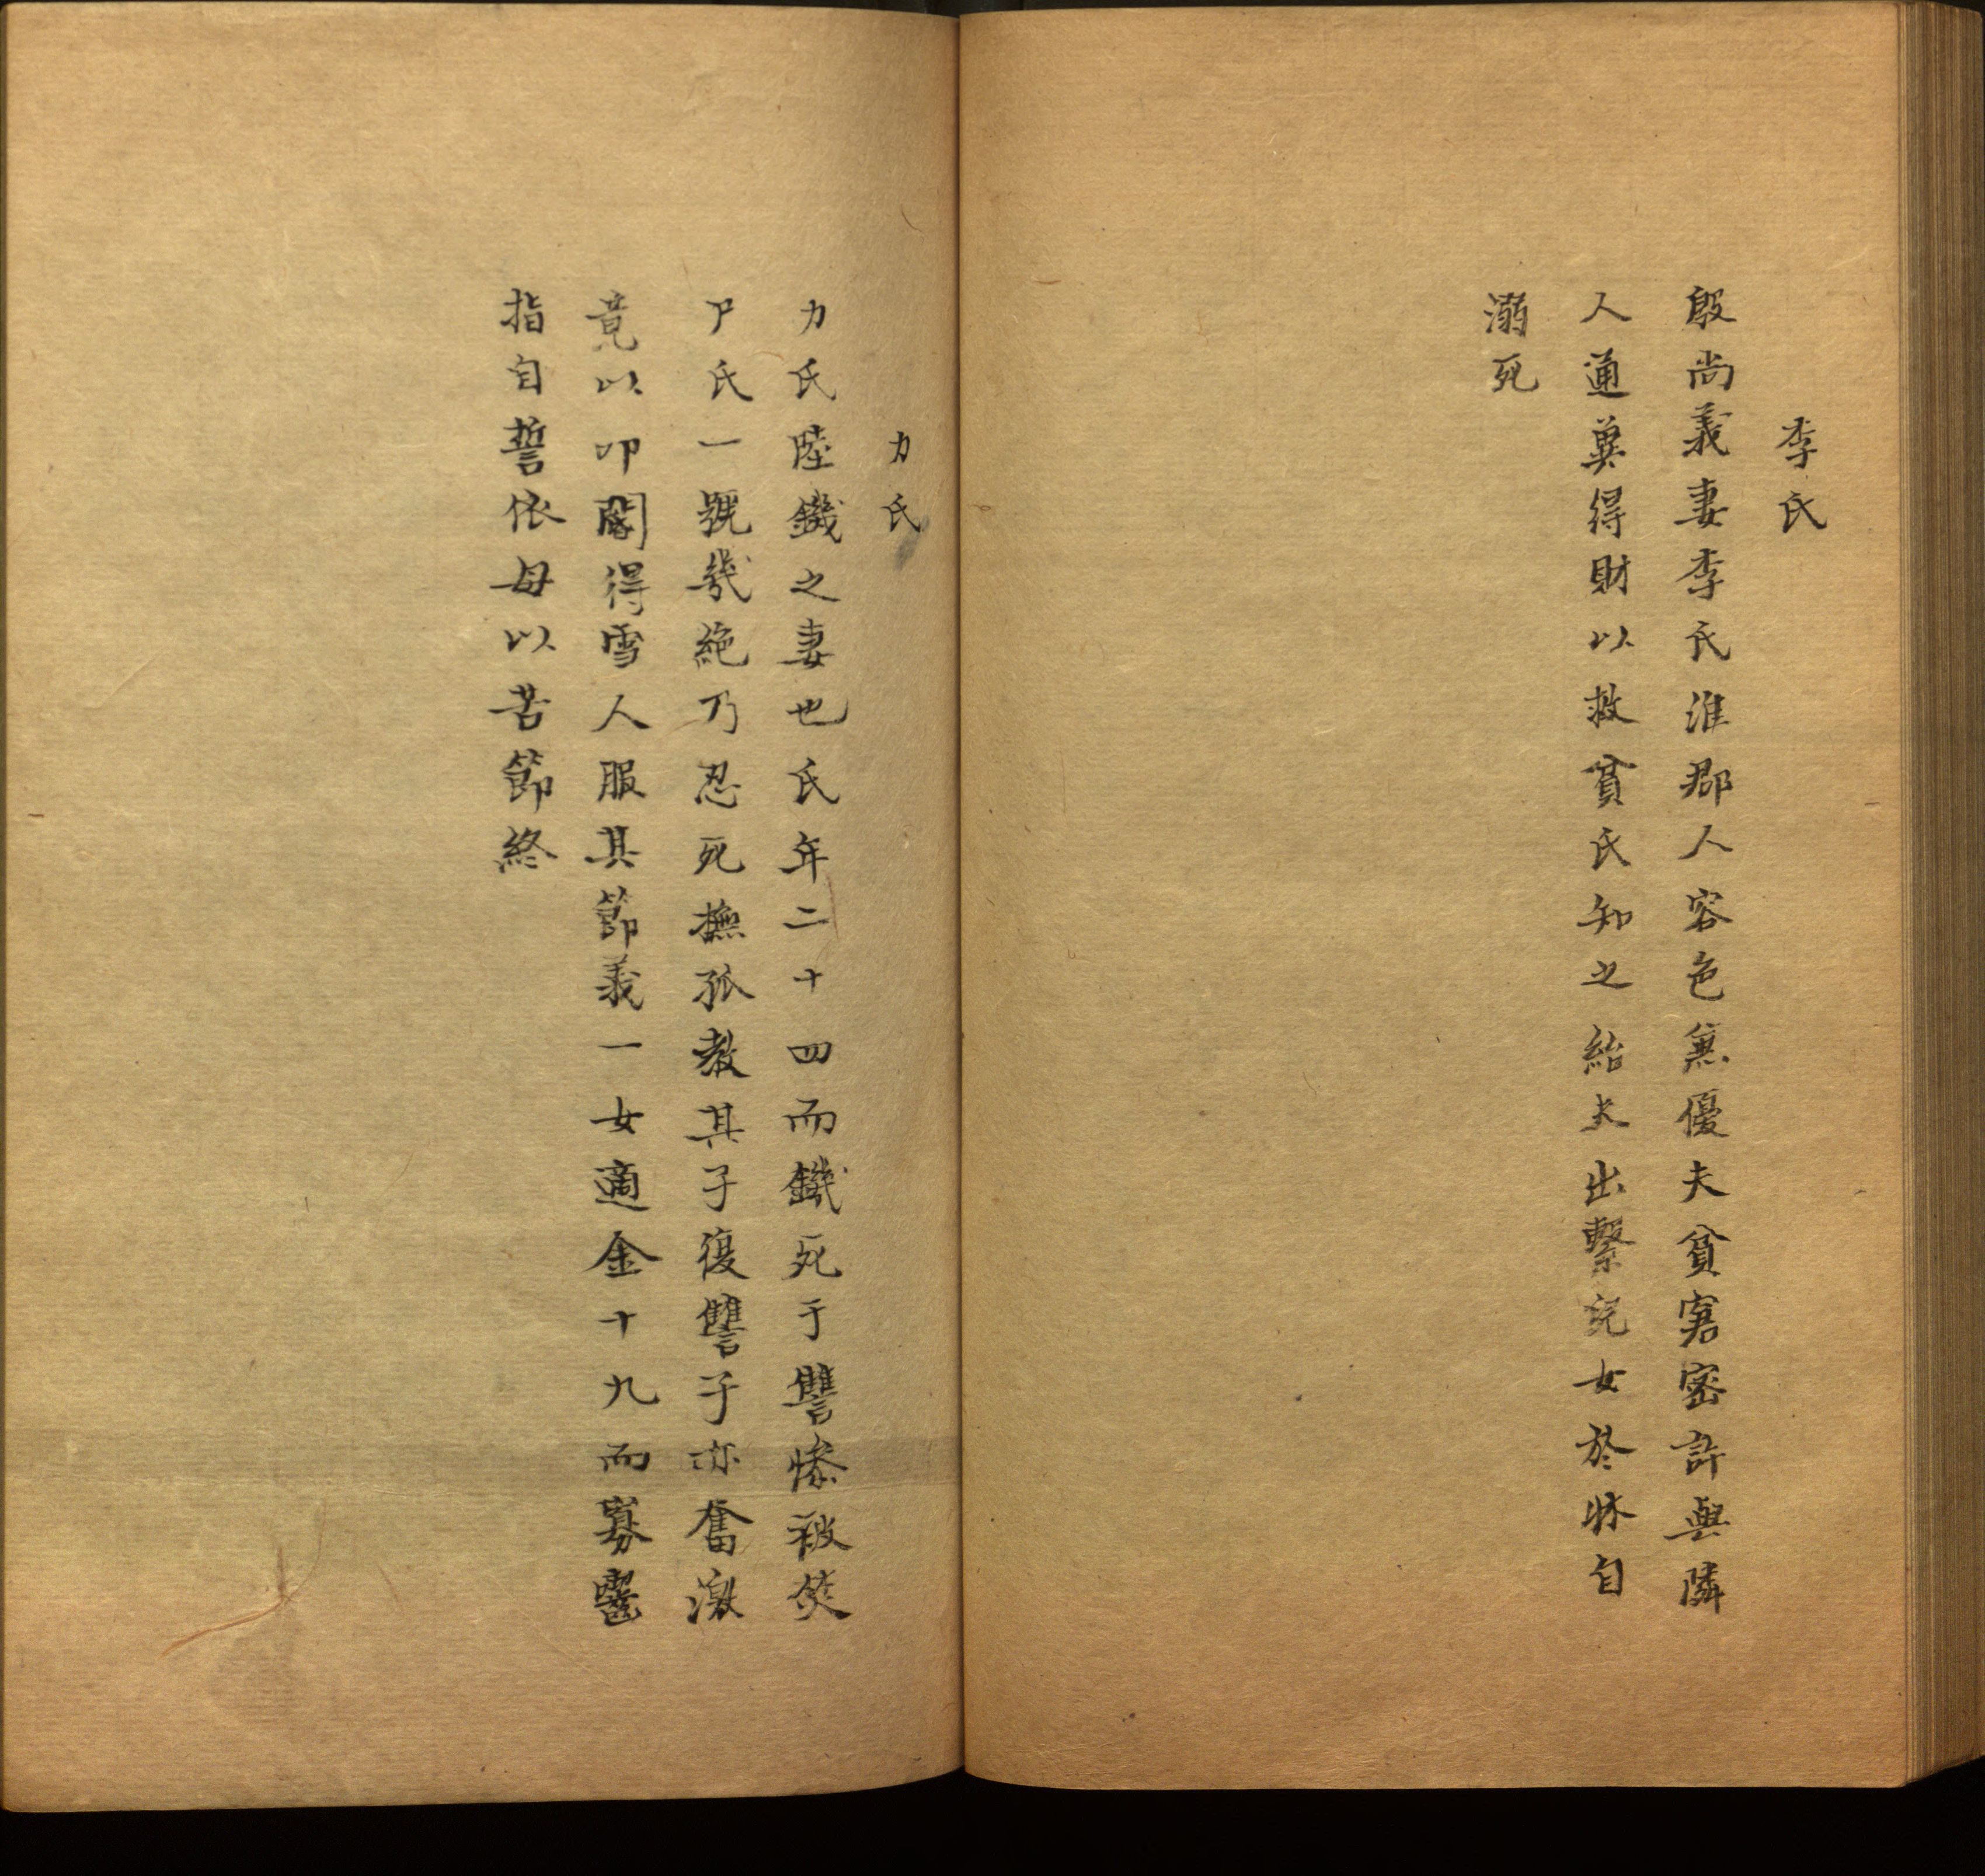 李氏
殷尚義妻李氏淮郡人容色兼優夫貧窘密許與隣
人通冀得財以救貧氏知之紿夫出繫兒女於牀自
溺死
力氏
力氏陸鐖之妻也氏年二十四而鐖死于讐慘被焚
尸氏一號幾絶乃忍死撫孤教其子復讐子亦奮激
竟以叩閽得雪人服其節義一女適金十九而寡齧
指自誓依母以苦節終